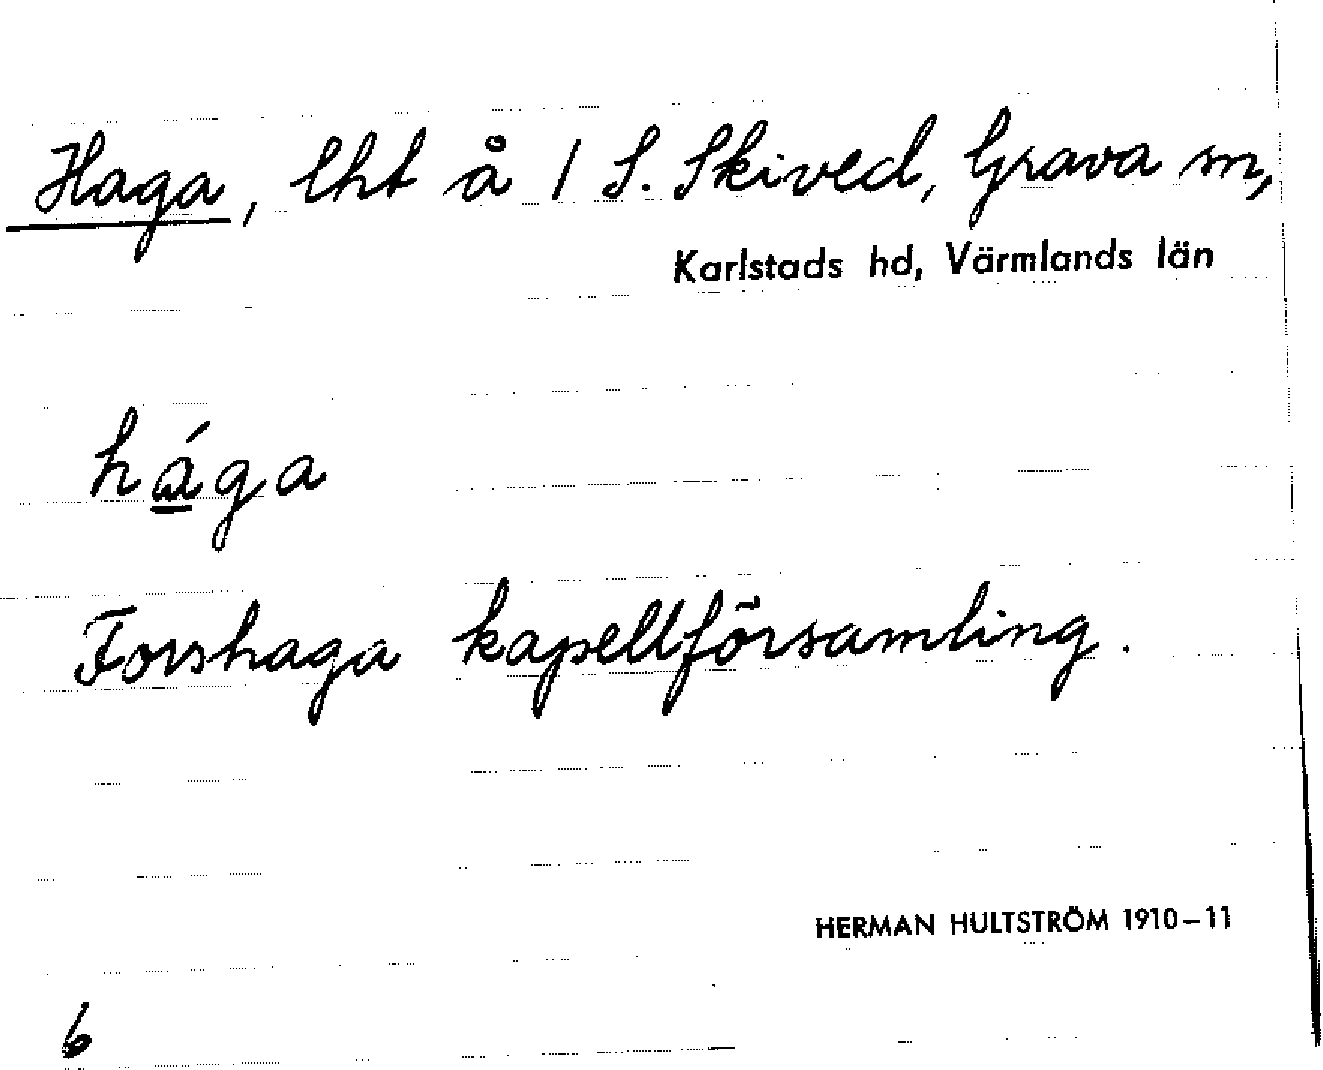 Haga, lht å 1 S. Skived, Grava sn,
Karlstads hd, Värmlands län
hága
Forshaga kapellförsamling.
HERMAN HULTSTRÖM 1910-11
6